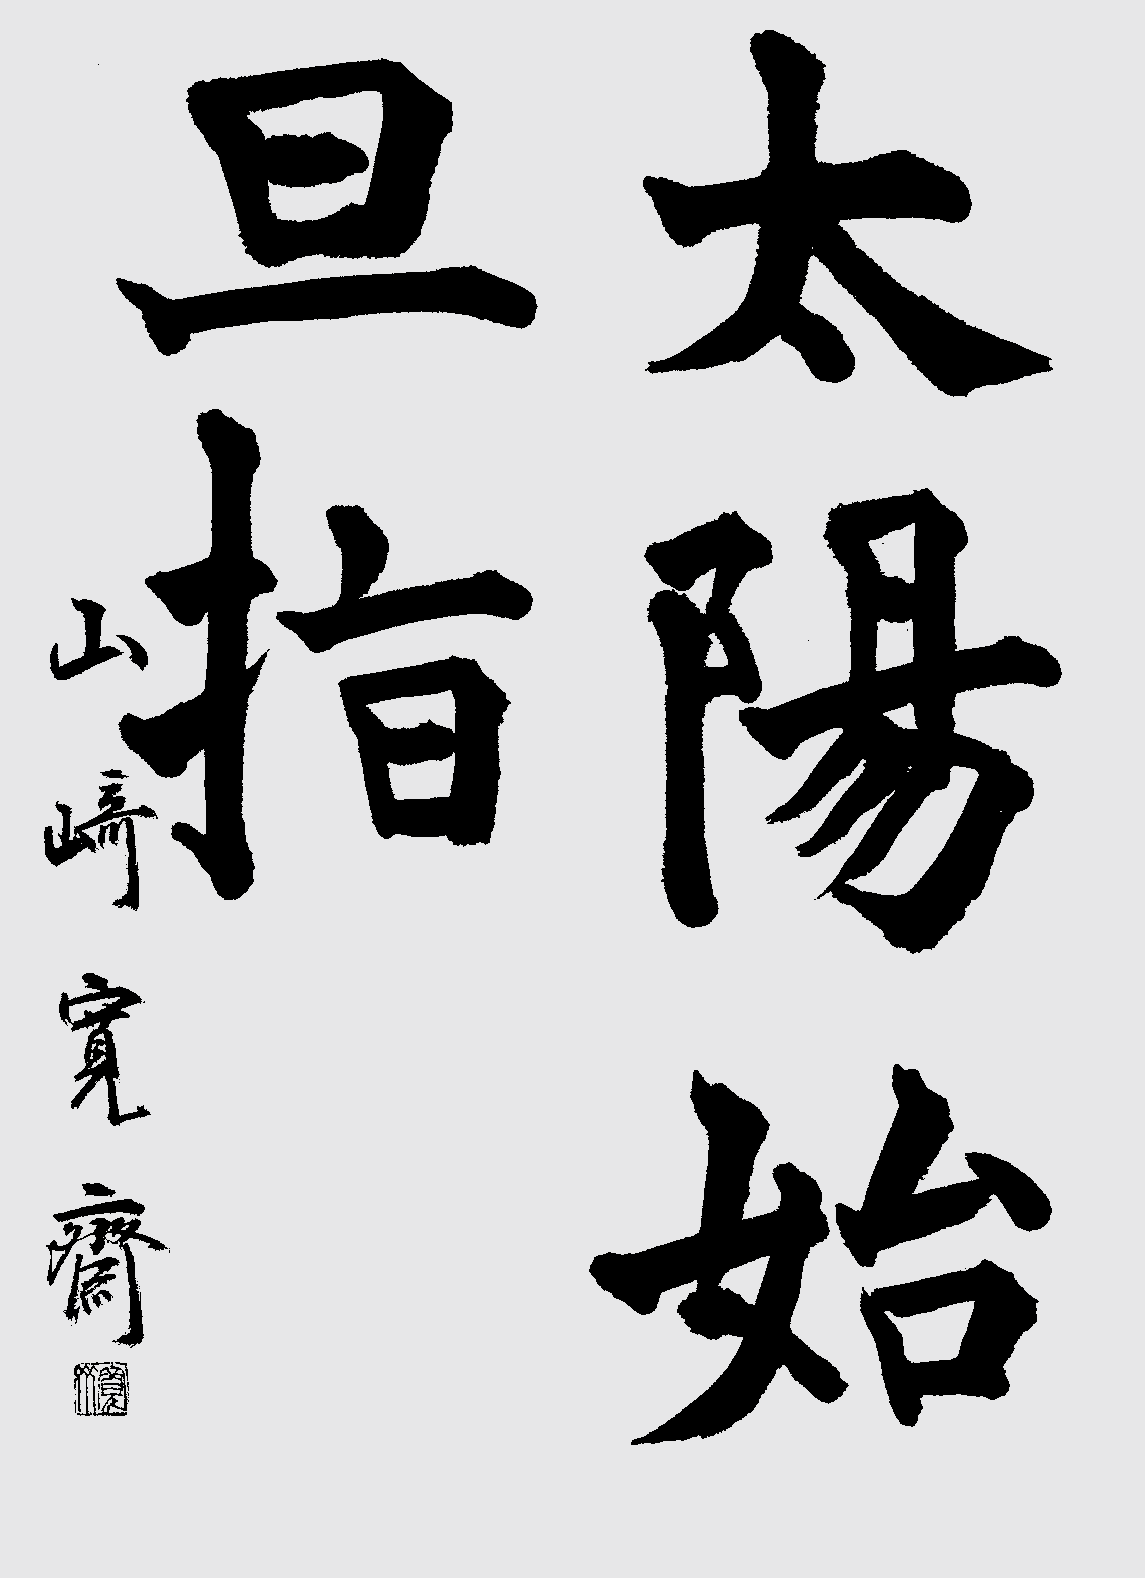 太陽始
旦指
山﨑寛齋